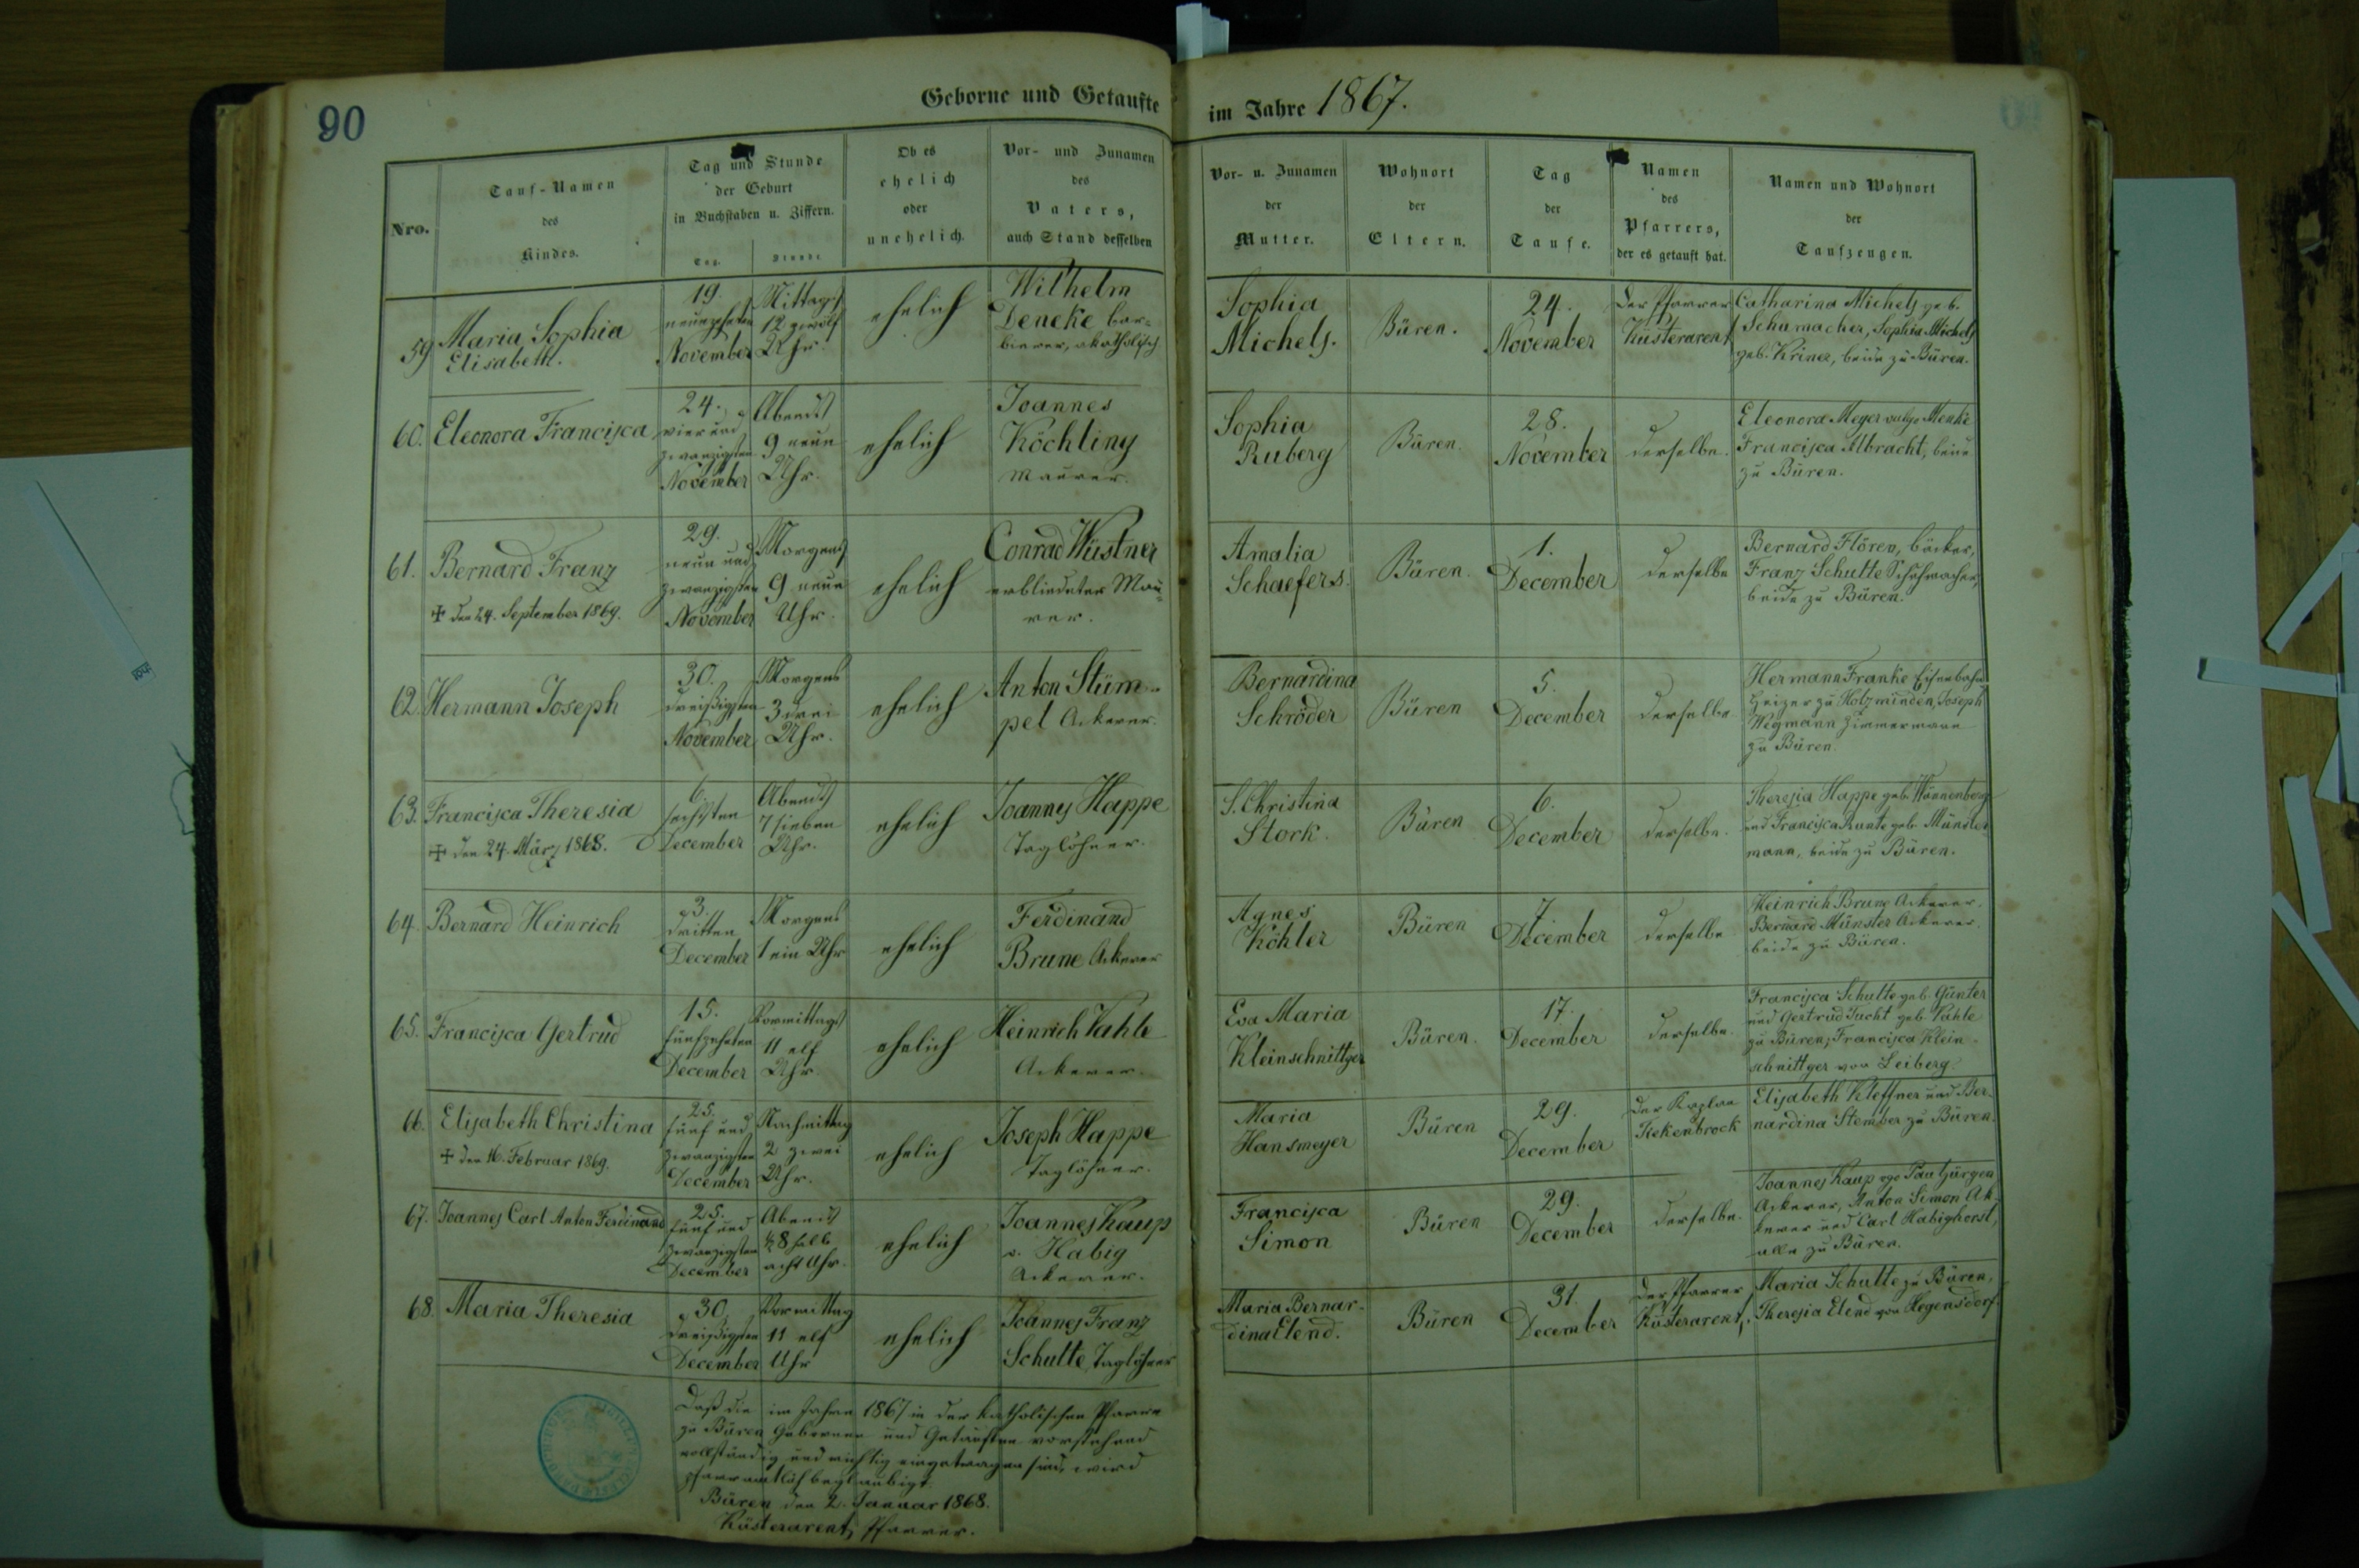 90
Geborne und Getaufte im Jahre 1867.
Nro.
Tauf-Namen
des
Kindes.
Tag und Stunde
der Geburt
in Buchstaben u. Ziffern.
Tag.
Stunde
Ob es
ehelich
oder
unehelich.
Vor- und Zunamen
des
Vaters,
auch Stand desselben
Vor- u. Zunamen
der
Mutter.
Wohnort
der
Eltern.
Tag
der
Taufe.
Namen
des
Pfarrers,
der es getauft hat.
Namen und Wohnort
der
Taufzeugen.
59
Maria Sophia
Elisabeth.
19.
neunzehnten
November
Mittags
12 zwölf
Uhr.
ehelich
Wilhelm
Deneke bar-
bierer, akatholisch
Sophia
Michels.
Büren.
24.
November
Der Pfarrer
Küsterarent
Catharina Michels geb.
Schumacher, Sophia Michels
geb. Kriner, beide zu Büren.
60.
Eleonora Francisca
24.
vier und
zwanzigsten
November
Abends
9 neun
Uhr.
ehelich
Joannes
Köchling
Maurer.
Sophia
Ruberg
Büren.
28.
November
derselbe.
Eleonora Meyer vulgo Menke
Francisca Albracht, beide
zu Büren.
61.
Bernard Franz
✠ den 24. September 1869.
29.
neun und
zwanzigsten
November
Morgens
9 neun
Uhr.
ehelich
Conrad Wüstner
erblindeter Mau-
rer.
Amalia
Schaefers.
Büren.
1.
December
derselbe
Bernard Flören, bäcker,
Franz Schulte Schuhmacher,
beide zu Büren.
62.
Hermann Joseph
30.
dreißigsten
November
Morgens
3 drei
Uhr.
ehelich
Anton Stüm-
pel Ackerer.
Bernardina
Schröder
Büren
5.
December
derselbe
Hermann Franke Eisenbahn
Heizer zu Holzminden, Joseph
Wegmann Zimmermann
zu Büren.
63.
Francisca Theresia
✠ den 24. März 1868.
6.
sechsten
December
Abends
7 sieben
Uhr.
ehelich
Joannes Happe
Taglöhner.
S. Christina
Stork.
Büren
6.
December
derselbe.
Theresia Happe geb. Wünnenberg
und Francisca Runte geb. Münster
mann, beide zu Büren.
64.
Bernard Heinrich
3.
dritten
December
Morgens
1 ein Uhr
ehelich
Ferdinand
Brune Ackerer
Agnes
Köhler
Büren
7.
December
derselbe
Heinrich Brune Ackerer,
Bernard Münster Ackerer
beide zu Büren.
65.
Francisca Gertrud
15.
fünfzehnten
December
Vormittags
11 elf
Uhr.
ehelich
Heinrich Vahle
Ackerer.
Eva Maria
Kleinschnittger
Büren.
17.
December
derselbe.
Francisca Schulte geb. Günter
und Gertrud Sucht geb. Vahle
zu Büren, Francisca Klein-
schnittger von Leiberg.
66.
Elisabeth Christina
✠ den 16. Februar 1869.
25.
fünf und
zwanzigsten
December
Nachmittag
2 zwei
Uhr.
ehelich
Joseph Happe
Taglöhner.
Maria
Hansmeyer
Büren
29.
December
der Kaplan
Kekenbrock
Elisabeth Kleffner und Ber-
nardina Stember zu Büren.
67.
Joannes Carl Anton Ferdinand
25.
fünf und
zwanzigsten
December
Abends
½8 halb
acht Uhr.
ehelich
Joannes Kaup
v. Habig
Ackerer.
Francisca
Simon
Büren
29.
December
derselbe.
Joannes Kaup vgo
Ackerer, Anton Simon Ak-
kerer und Carl Habighorst,
alle zu Büren.
68.
Maria Theresia
30.
dreißigsten
December
Vormittag
11 elf
Uhr
ehelich
Joannes Franz
Schulte, Taglöhner
Maria Bernar-
dina Elend.
Büren
31.
December
der Pfarrer
Küsterarent.
Maria Schulte zu Büren,
Theresia Elend von Hegensdorf.
Daß die im Jahre 1867 in der katholischen Pfarre
zu Büren Gebornen und Getauften vorstehend
vollständig und richtig eingetragen sind, wird
pfarramtlich beglaubigt.
Büren den 2. Januar 1868.
Küsterarent, Pfarrer.